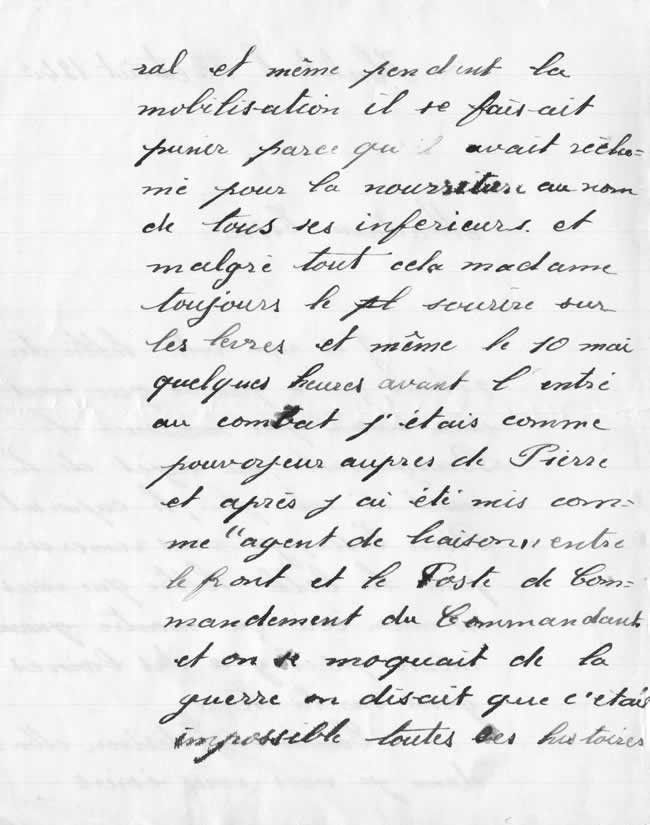 ral et même pendent la
mobilisation il se faisait
punir parce qu'il avait récla=
mé pour la nourriture au nom
de tous ses inferieurs. et
malgré tout cela madame
toujours le sourire sur
les levres et même le 10 mai
quelques heures avant l'entré
au combat j'étais comme
pouvoyeur aupres de Pierre
et après j ai été mis com=
me "agent de liaison" entre
le front et le Poste de Com=
mandement du Commandant
et on se moquait de la
guerre on disait que c'etais
impossible toutes ces histoires